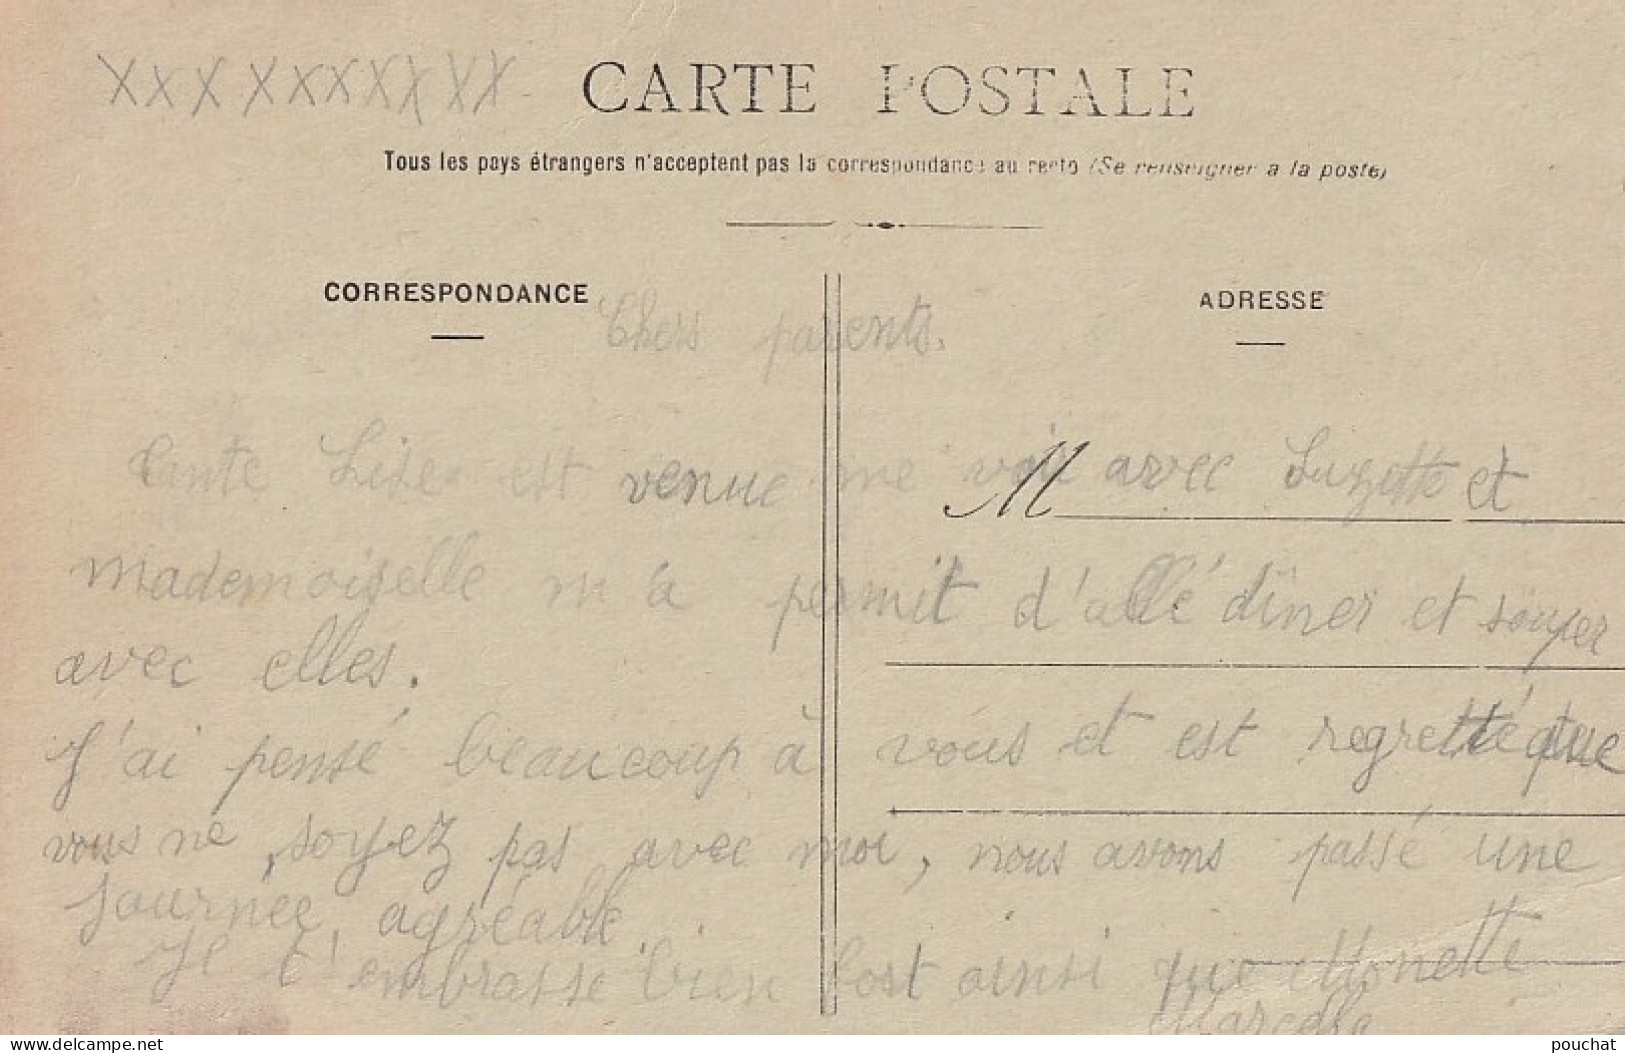 XXX XXXXX XX
CARTE POSTALE
Tous les pays étrangers n'acceptent pas la correspondance au recto (Se renseigner a la poste)
CORRESPONDANCE
ADRESSE
Chers parents.
Tante Lise est venue me voir avec Suzette et
M
mademoiselle m'a permit d'allé dîner et souper
avec elles.
J'ai pensé beaucoup à vous et est regretté que
vous ne soyez pas avec moi, nous avons passé une
journée agréable.
Je t'embrasse bien fort ainsi que Monette
Marcelle
pouchat